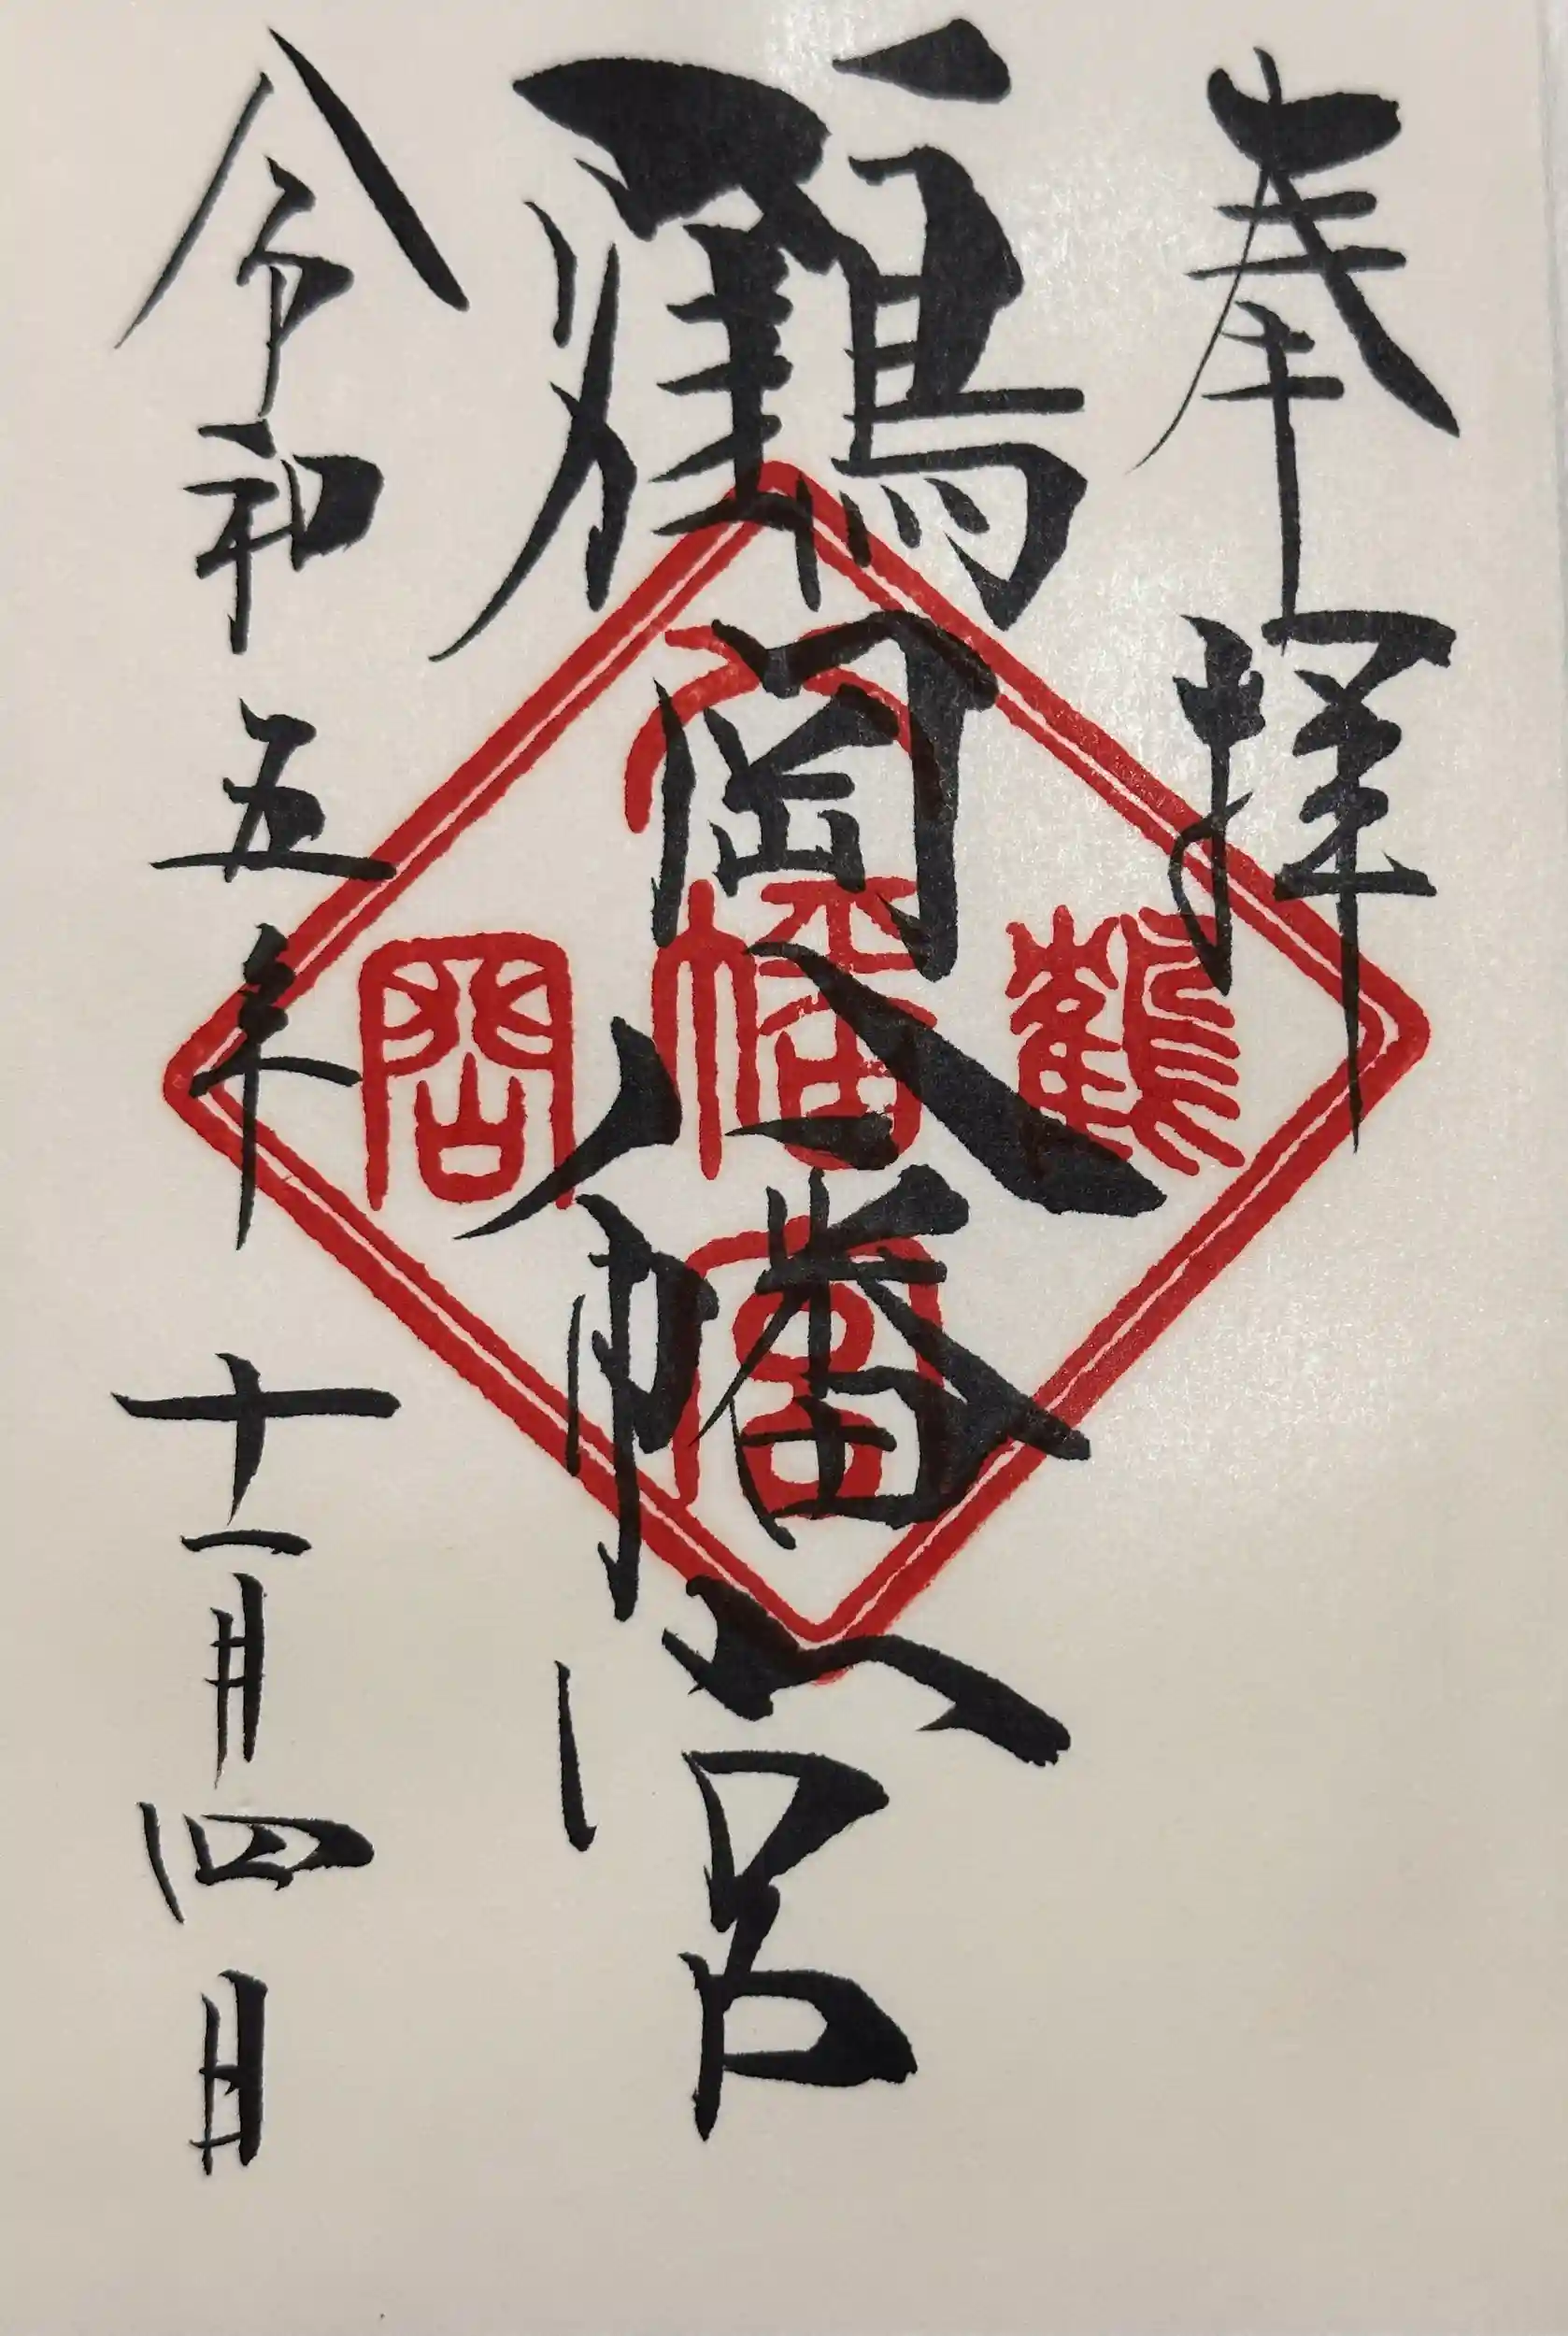 奉拝
鶴岡八幡宮
令和五年十一月四日
鶴
岡
八
幡
宮